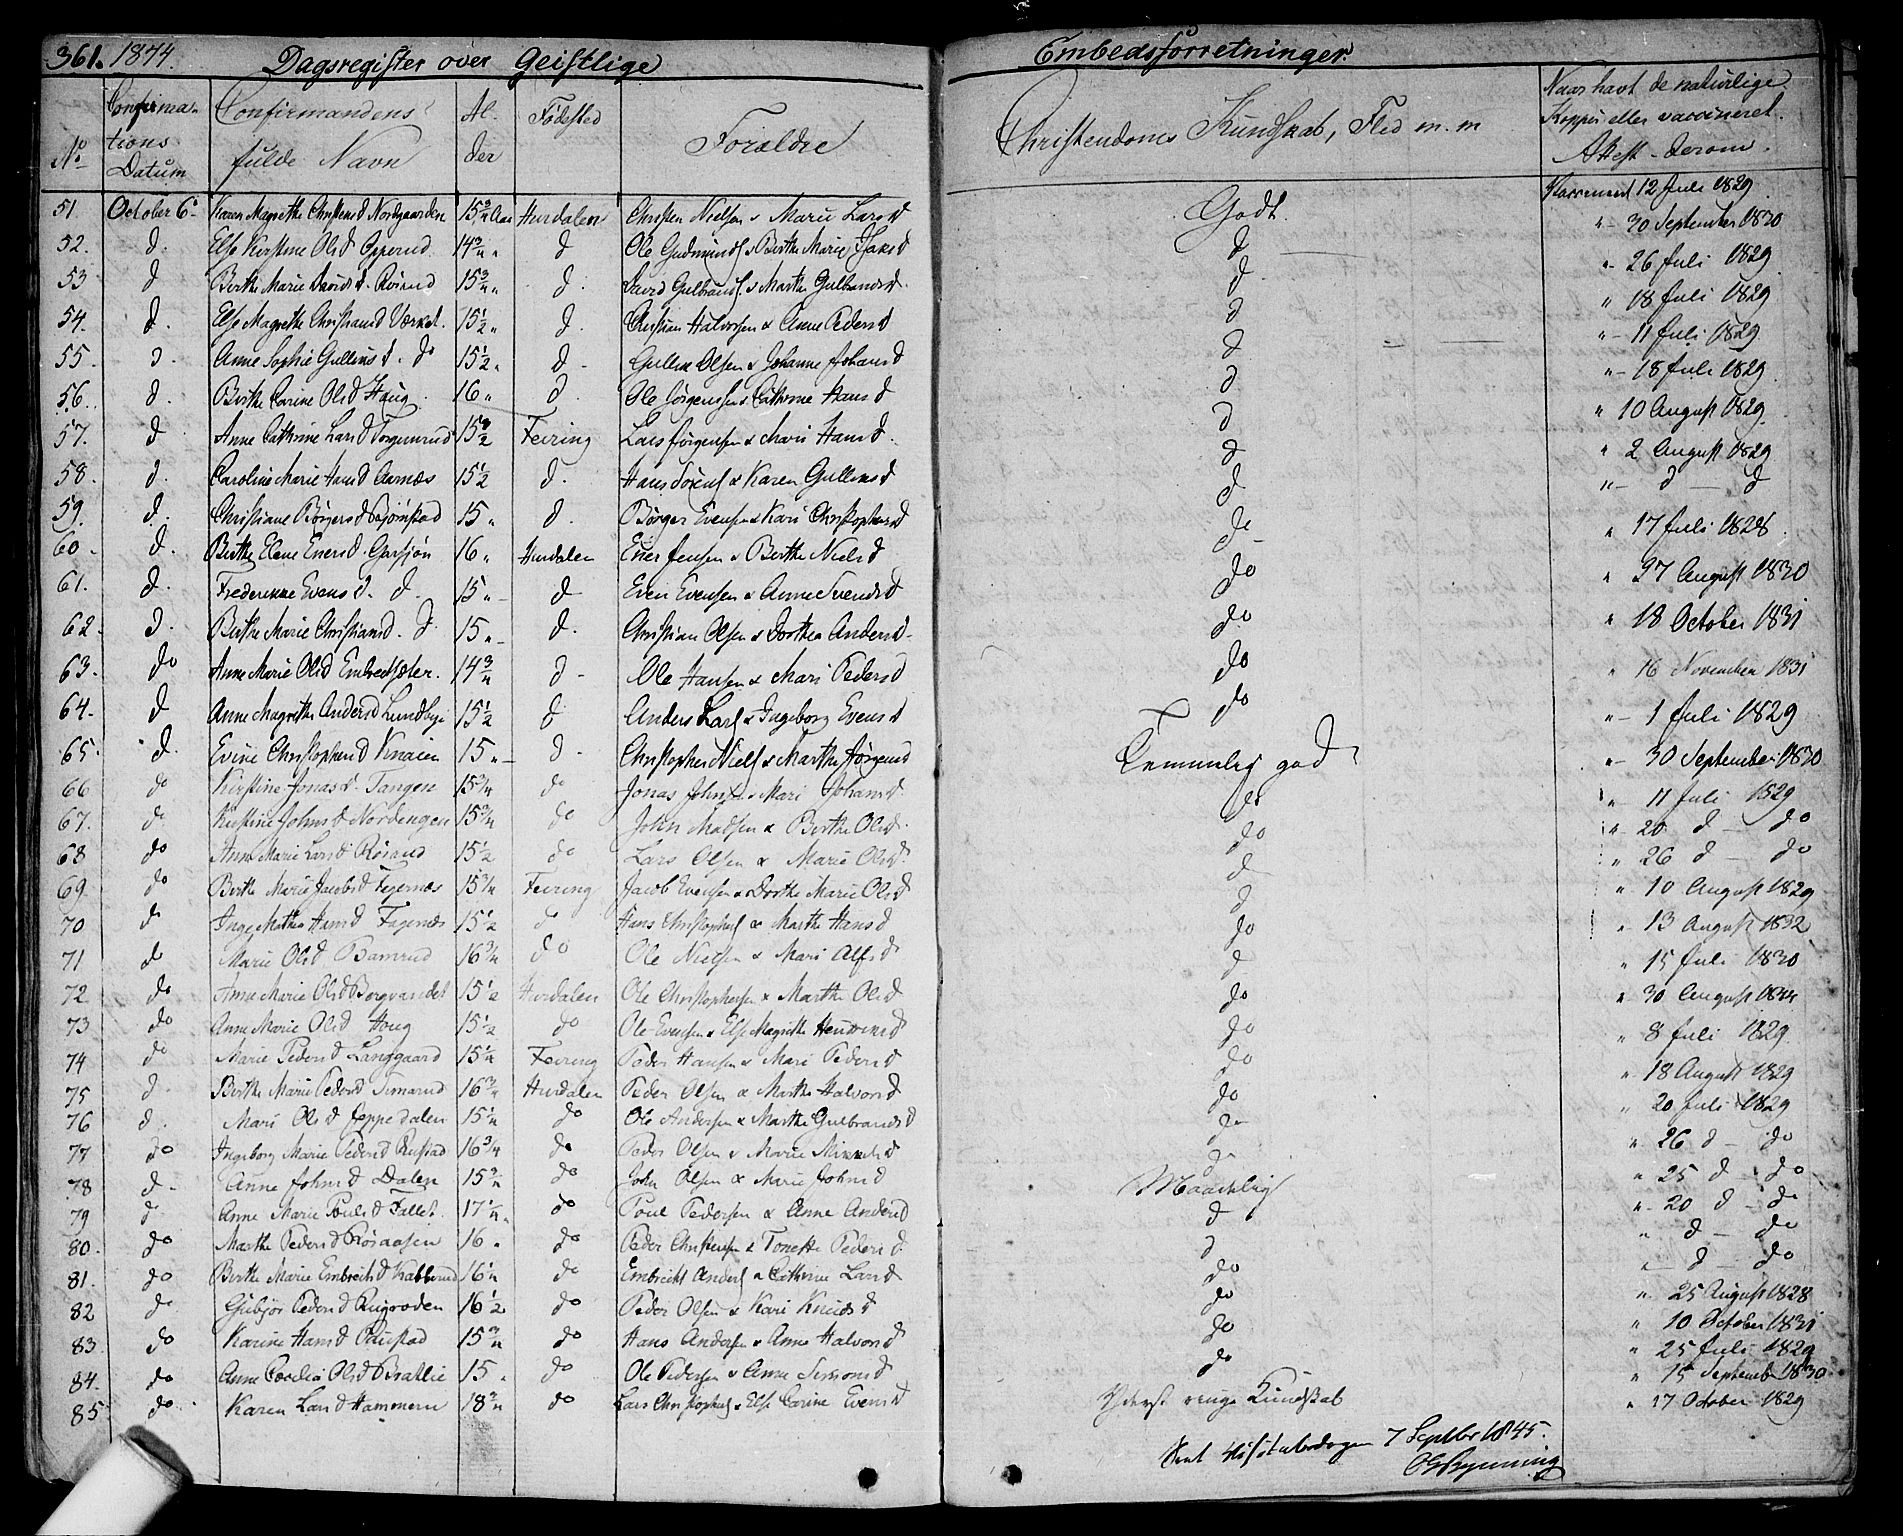 361. 1844. Dagsregister over Geistlige Embedsforretninger.
No Confirmations Datum Confirmandens fulde Navn Alder Fødested Forældre Christendoms Kundskab, Flid m. m Naar havt de naturlige Kopper eller vaccineret. Attest derom.
51. October 6. Karen Magrethe Christensd Nordgaarden 15 3/4 Aar Hurdalen Christen Nielsen & Marie Larsd Godt. Vaccineret 12 Juli 1829.
52. d. Else Kirstine Olsd Opperud 14 3/4 " d Ole Gudmunds. & Berthe Marie Jaksd d " 30 September 1830
53 d Berthe Marie Davids d. Rørud 15 3/4 " d. David Gulbrands. & Marthe Gulbrandsd. d. " 26 Juli 1829
54. d. Else Magrethe Christiansd Værket. 15 1/2 " d. Christian Halvorsen & Anne Pedersd d " 18 Juli 1829
55. d. Anne Sophie Gullens d. do 15 1/2 " d. Gullen Olsen & Johanne Johansd d " 11 Juli 1829
56. d. Berthe Carine Olsd Haug 16 " d. Ole Jørgensen & Cathrine Hansd d " 18 Juli 1829
57. d Anne Cathrine Larsd Torgunrud 15 1/2 Feiring Lars Jørgensen & Mari Hansd. d " 10 August 1829
58. d. Caroline Marie Hansd Aarnæs 15 1/2 d. Hans Sørens & Karen Gullensd d " 2 August 1829
59. d. Christiane Børgersd Bjørnstad 15 " d. Børger Evensen & Kari Christophersd d " d d
60. d. Berthe Elene Enersd. Garsjøn 16 " Hurdalen Ener Jensen & Berthe Nielsd do " 17 Juli 1828
61. d. Frederikke Evensd. d 15 " d Even Evensen & Anne Svendsd do " 27 August 1830
62. d. Berthe Marie Christiansd. d. 15 " d. Christian Olsen & Dorthea Andersd do " 18 October 1831
63. do Anne Marie Olsd Embretsæter. 14 3/4 d Ole Hansen & Mari Pedersd do " 16 November 1831
64. d Anne Magrethe Andersd Lundbye 15 1/2 d Anders Lars & Ingeborg Evensd do " 1 Juli 1829
65. d. Evine Christophersd Knaien 15 " d Christopher Niels & Marthe Jørgensd Temmelig god " 30 September 1830
66 do Kirstine Jonasd. Tangen 15 3/4 do Jonas Johns. & Mari Johansd do " 11 Juli 1829
67. do Kirstine Johnsd Nordengen 15 3/4 do John Madsen & Berthe Olsd. do " 20 d do
68 do Anne Marie Larsd Røsaud 15 1/2 do Lars Olsen & Marie Olsd. d " 26 d do
69. do Berthe Marie Jacobsd Fagernæs 15 3/4 Feiring Jacob Evensen & Dorthe Marie Olsd d " 10 August 1829
70 do Inge Mathea Hansd Fagernæs 15 1/2 d Hans Christophers & Marthe Hansd do " 13 August 1832
71 do Marie Olsd Bamrud 16 3/4 do Ole Nielsen & Mari Alfsd d " 15 Juli 1830
72 do Anne Marie Olsd Borgvandet 15 1/2 Hurdalen Ole Christophersen & Marthe Olsd do " 30 August
73 do Anne Marie Olsd Houg 15 1/2 do Ole Evensen & Else Magrethe do " 8 Juli 1829.
74 do Marie Pedersd Langgaard 15 1/4 Feiring Peder Hansen & Mari Pedersd do " 18 August 1829
75 d. Berthe Marie Pedersd Simarud 16 3/4 Hurdalen Peder Olsen & Marthe Halvorsd do " 20 Juli 1829
76 d. Mari Olsd Jeppedalen 15 1/4 do Ole Andersen & Marthe Gulbrandsd do " 26 d do
77 do Ingeborg Marie Pedersd Rustad 16 3/4 do Peder Olsen & Marie Mikkelsd d " 25 d do
78 d Anne Johnsd Dalen 15 3/4 do John Olsen & Marie Johnsd Maadelig " 20 d do
79 d Anne Marie Poulsd Fallet. 17 1/4 " do Poul Pedersen & Anne Andersd d " d do
80. do Marthe Pedersd Røsaasen 16 " do Peder Christensen & Tonette Pedersd. d " d do
81. do Berthe Marie Embretsd Kabberud 16 1/4 do Embrecht Anders & Cathrine Larsd do " 25 August 1828
82 do Gubjør Pedersd Rugroden 16 1/2 do Peder Olsen & Kari Knudsd do " 10 October 1831
83. do Karine Hansd Paustad 15 3/4 do Hans Andersen & Anne Halvorsd do " 25 Juli 1829
84. do Anne Cecilia Olsd Brattlie 15 " do Ole Pedersen & Anne Simonsd do " 15 September 1830
85. do Karen Larsd Hammeren 18 3/4 do Lars Christophers & Else Carine Evensd Yderst ringe Kundskab " 17 October 1829
7 Septbr 1845.